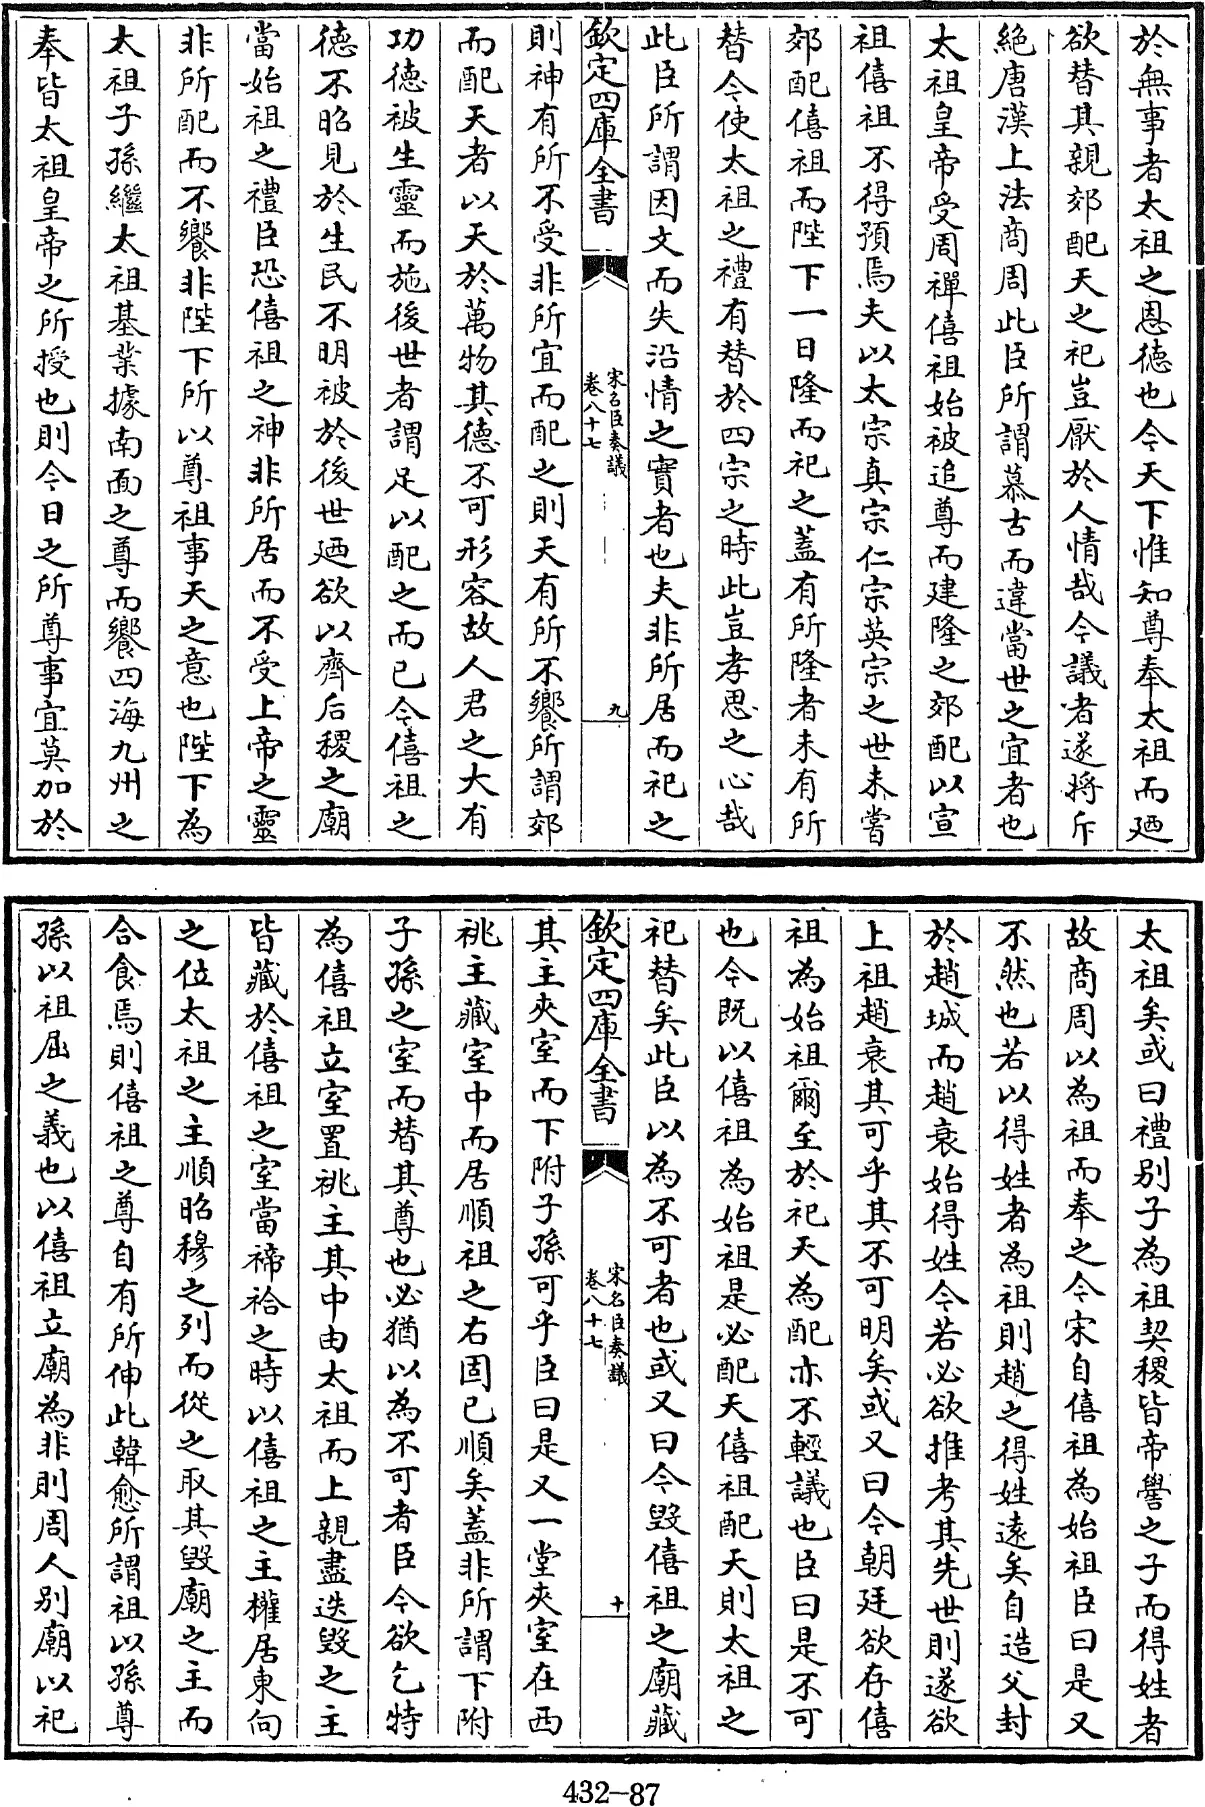 於無事者太祖之恩德也今天下惟知尊奉太祖而廼
欲替其親郊配天之祀豈厭於人情哉今議者遂將斥
絶唐漢上法商周此臣所謂慕古而違當世之宜者也
太祖皇帝受周禪僖祖始被追尊而建隆之郊配以宣
祖僖祖不得預焉夫以太宗真宗仁宗英宗之世未嘗
郊配僖祖而陛下一日隆而祀之蓋有所隆者未有所
替今使太祖之禮有替於四宗之時此豈孝思之心哉
此臣所謂因文而失沿情之實者也夫非所居而祀之
欽定四庫全書
宋名臣奏議
卷八十七
九
則神有所不受非所宜而配之則天有所不饗所謂郊
而配天者以天於萬物其德不可形容故人君之大有
功德被生靈而施後世者謂足以配之而已今僖祖之
德不昭見於生民不明被於後世廼欲以齊后稷之廟
當始祖之禮臣恐僖祖之神非所居而不受上帝之靈
非所配而不饗非陛下所以尊祖事天之意也陛下為
太祖子孫繼太祖基業據南面之尊而饗四海九州之
奉皆太祖皇帝之所授也則今日之所尊事宜莫加於
太祖矣或曰禮別子為祖契稷皆帝嚳之子而得姓者
故商周以為祖而奉之今宋自僖祖為始祖臣曰是又
不然也若以得姓者為祖則趙之得姓遠矣自造父封
於趙城而趙衰始得姓今若必欲推考其先世則遂欲
上祖趙衰其可乎其不可明矣或又曰今朝廷欲存僖
祖為始祖爾至於祀天為配亦不輕議也臣曰是不可
也今既以僖祖為始祖是必配天僖祖配天則太祖之
祀替矣此臣以為不可者也或又曰今毀僖祖之廟藏
欽定四庫全書
宋名臣奏議
卷八十七
十
其主夾室而下附子孫可乎臣曰是又一堂夾室在西
祧主藏室中而居順祖之右固已順矣蓋非所謂下附
子孫之室而替其尊也必猶以為不可者臣今欲乞特
為僖祖立室置祧主其中由太祖而上親盡迭毀之主
皆藏於僖祖之室當禘祫之時以僖祖之主權居東向
之位太祖之主順昭穆之列而從之取其毀廟之主而
合食焉則僖祖之尊自有所伸此韓愈所謂祖以孫尊
孫以祖屈之義也以僖祖立廟為非則周人別廟以祀
432-87